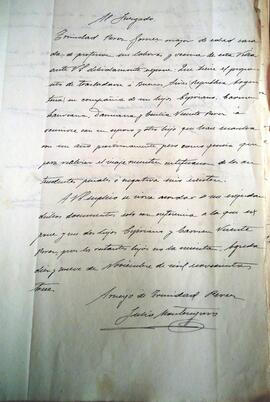 Al Juzgado
Trinidad Perez Gomez mayor de edad casa-
da, de profesion sus labores y vecina de esta Villa
ante VS debidamente expone: Que tiene el proposi-
to de trasladarse a Buenos Aires Republica Argen-
tina en compañia de sus hijos Cipriano, Carmen
y Emilia Vicente Perez a
reunirse con su esposo y otro hijo que hace
un año proximamente pero como precisa que
para realizar el viaje certificacion de los an-
tecedentes penales o negativa de los
A VS suplico se sirva acordar se me expedan
dichos documentos solo con referencia a la que ex-
pone y sus dos hijos Cipriano y Carmen Vicente
Perez, por los restantes hijos no la necesita.
diez y nueve de Noviembre de mil novecientos
trece
Arruego de Trinidad Perez
Julio